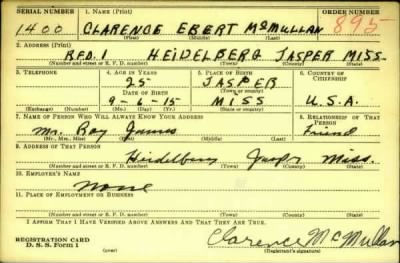 SERIAL NUMBER 1. NAME (Print) ORDER NUMBER
1400 CLARENCE EBERT McMULLAN 895
(First) (Middle) (Last)
2. ADDRESS (Print)
RFD. 1 HEIDELBERG JASPER MISS.
(Number and street or R. F. D. number) (Town) (County) (State)
3. TELEPHONE 4. AGE IN YEARS 5. PLACE OF BIRTH 6. COUNTRY OF CITIZENSHIP
25 JASPER
DATE OF BIRTH (Town or county)
9-6-15 MISS U.S.A.
(Exchange) (Number) (Mo.) (Day) (Yr.) (State or country)
7. NAME OF PERSON WHO WILL ALWAYS KNOW YOUR ADDRESS 8. RELATIONSHIP OF THAT PERSON
Mr. Roy James Friend
(Mr., Mrs., Miss) (First) (Middle) (Last)
9. ADDRESS OF THAT PERSON
Heidelberg Jaspr Miss.
(Number and street or R. F. D. number) (Town) (County) (State)
10. EMPLOYER'S NAME
None
11. PLACE OF EMPLOYMENT OR BUSINESS
(Number and street or R. F. D. number) (Town) (County) (State)
I AFFIRM THAT I HAVE VERIFIED ABOVE ANSWERS AND THAT THEY ARE TRUE.
REGISTRATION CARD
D. S. S. Form 1 Clarence McMullan
(over) (Registrant's signature)